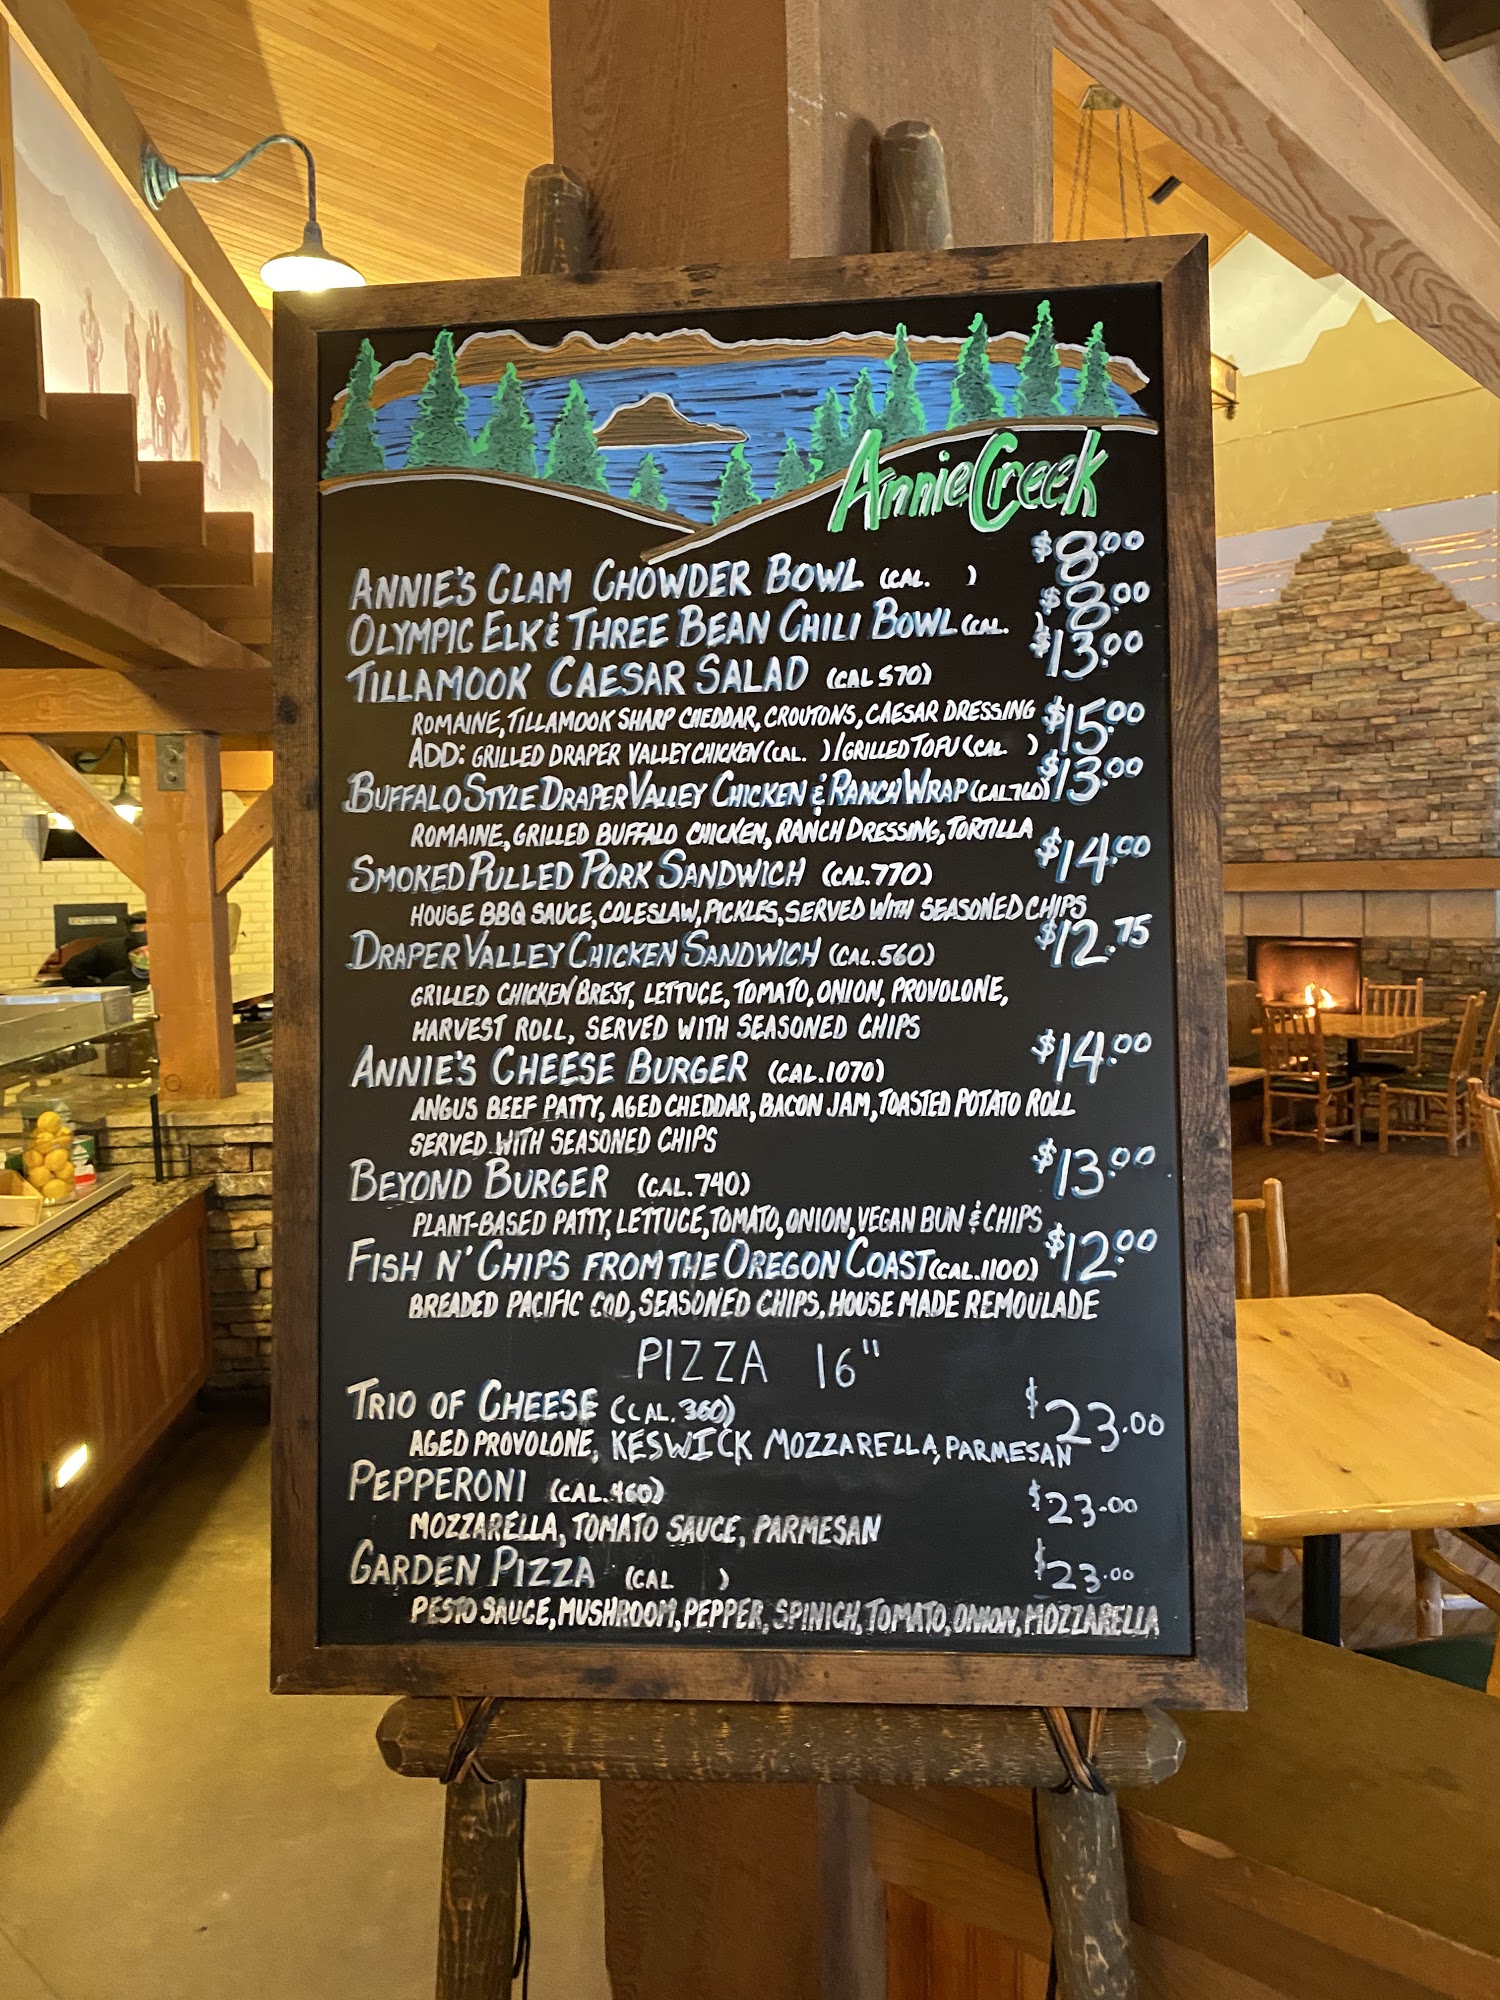 Annie Creek
ANNIE'S CLAM CHOWDER BOWL (CAL. ) $8.00
OLYMPIC ELK & THREE BEAN CHILI BOWL (CAL. ) $8.00
TILLAMOOK CAESAR SALAD (CAL 570) $13.00
ROMAINE, TILLAMOOK SHARP CHEDDAR, CROUTONS, CAESAR DRESSING
ADD: GRILLED DRAPER VALLEY CHICKEN (CAL. ) / GRILLED TOFU (CAL. ) $15.00
BUFFALO STYLE DRAPER VALLEY CHICKEN & RANCH WRAP (CAL 760) $13.00
ROMAINE, GRILLED BUFFALO CHICKEN, RANCH DRESSING, TORTILLA
SMOKED PULLED PORK SANDWICH (CAL. 770) $14.00
HOUSE BBQ SAUCE, COLESLAW, PICKLES, SERVED WITH SEASONED CHIPS
DRAPER VALLEY CHICKEN SANDWICH (CAL. 560) $12.75
GRILLED CHICKEN BREST, LETTUCE, TOMATO, ONION, PROVOLONE,
HARVEST ROLL, SERVED WITH SEASONED CHIPS
ANNIE'S CHEESE BURGER (CAL. 1070) $14.00
ANGUS BEEF PATTY, AGED CHEDDAR, BACON JAM, TOASTED POTATO ROLL
SERVED WITH SEASONED CHIPS
BEYOND BURGER (CAL. 740) $13.00
PLANT-BASED PATTY, LETTUCE, TOMATO, ONION, VEGAN BUN & CHIPS
FISH N' CHIPS FROM THE OREGON COAST (CAL. 1100) $12.00
BREADED PACIFIC COD, SEASONED CHIPS, HOUSE MADE REMOULADE
PIZZA 16"
TRIO OF CHEESE (CAL. 360) $23.00
AGED PROVOLONE, KESWICK MOZZARELLA, PARMESAN
PEPPERONI (CAL. 460) $23.00
MOZZARELLA, TOMATO SAUCE, PARMESAN
GARDEN PIZZA (CAL ) $23.00
PESTO SAUCE, MUSHROOM, PEPPER, SPINICH, TOMATO, ONION, MOZZARELLA